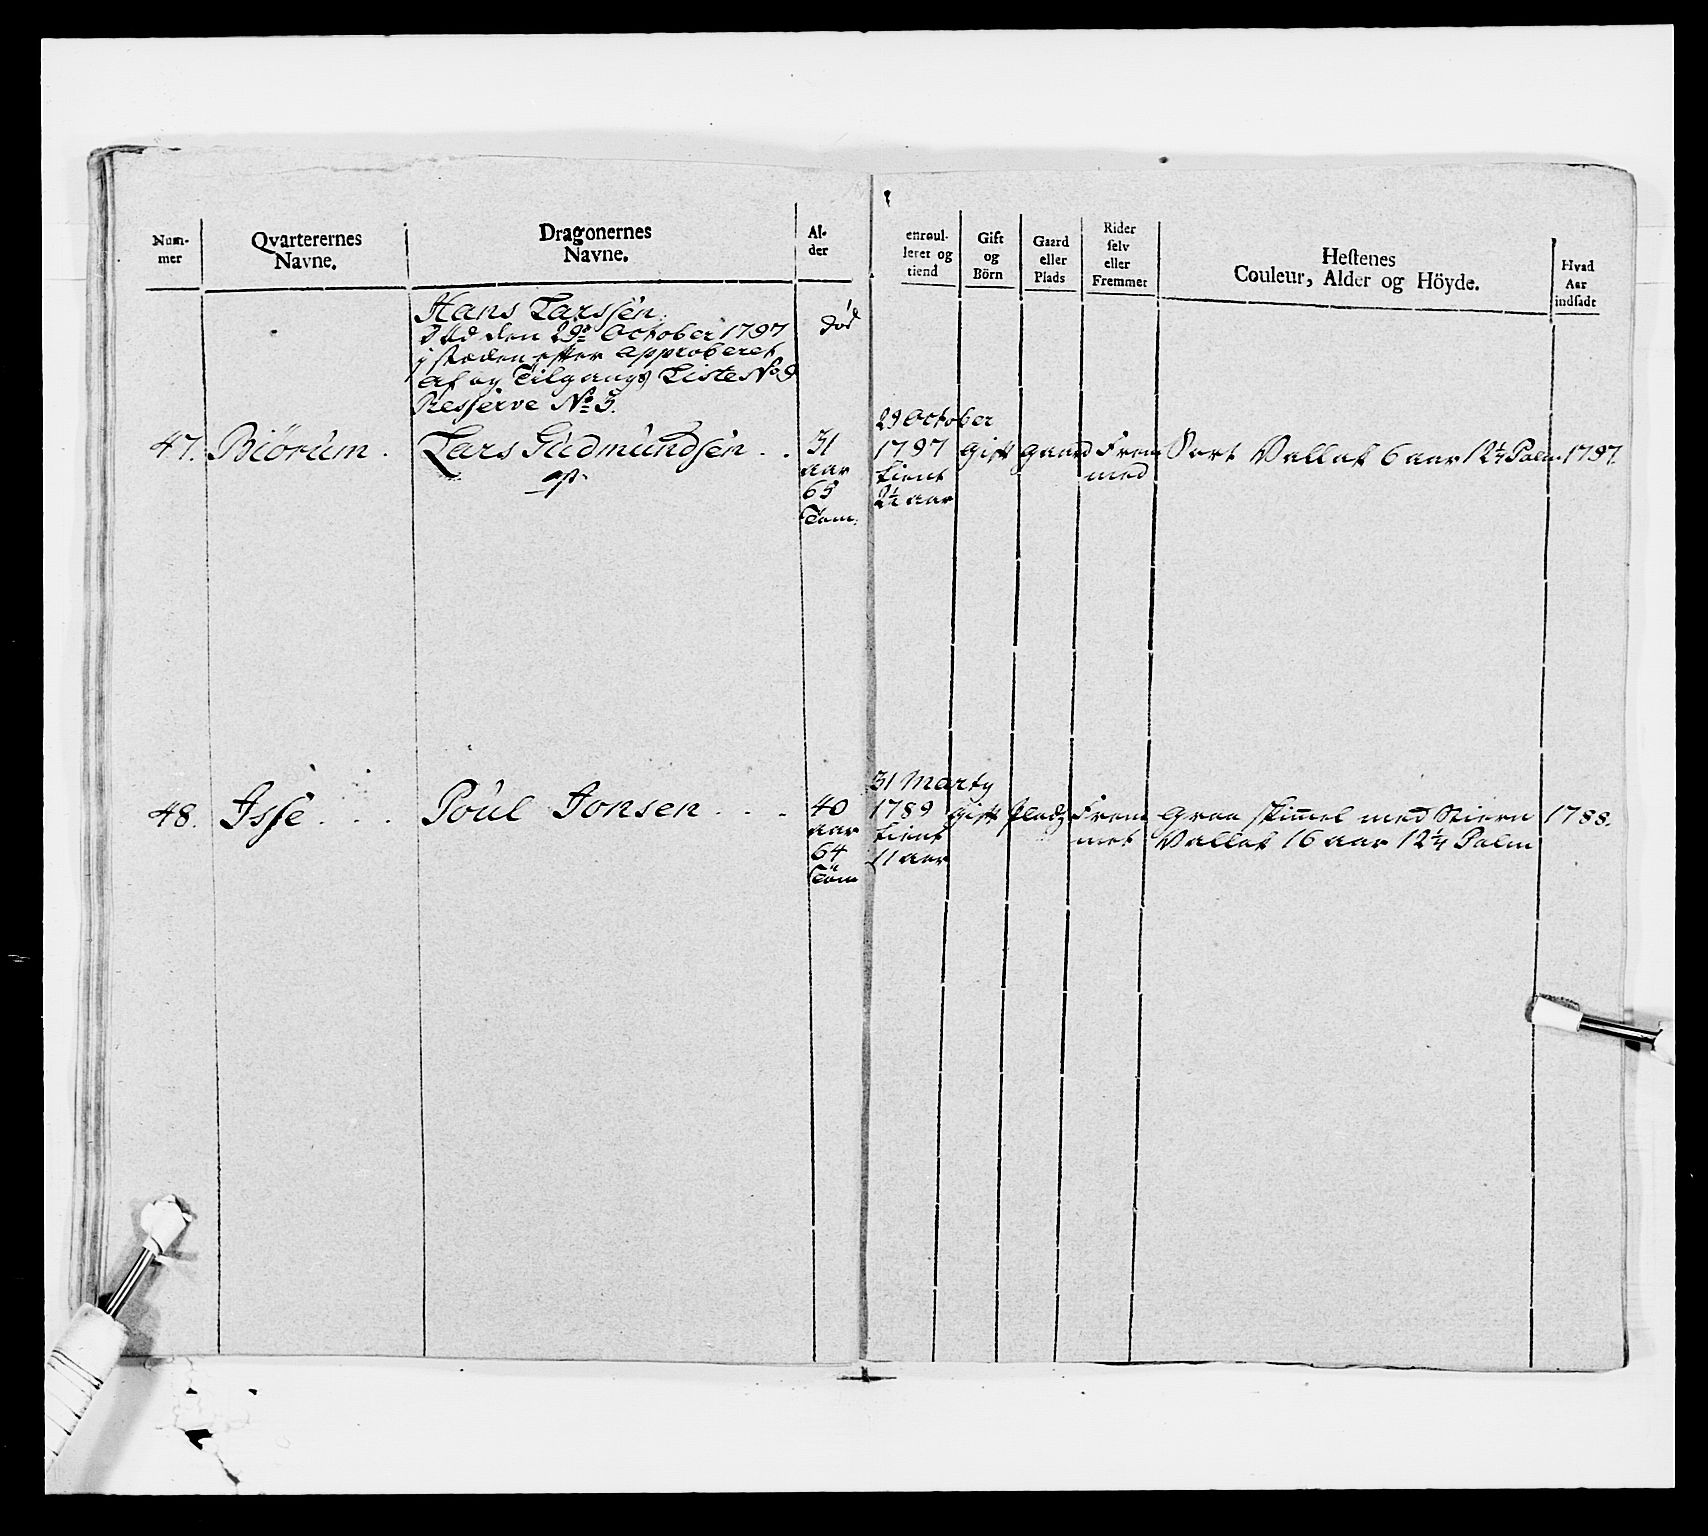 Num-
mer
Qvarterernes
Navne.
Dragonernes
Navne.
Al-
der
enroul-
leret og
tiend
Gift
og
Börn
Gaard
eller
Plads
Rider
selv
eller
Fremmet
Hestenes
Couleur, Alder og Höyde.
Hvad
Aar
indsadt
Hans Larssen. død
død den 29de October 1797
i stæden efter approberet
Af og Tilgangs Liste No 9
Resserve No 3.
47. Biörum. Lars Gudmundsen . .
op
31
aar
65
Tom:
29 October
1797
tient
2¼ aar
Gift
gaard
Frem
med
Sort Vallak 6 aar 12¼ Palm 1797.
48. Isse . . . Poul Jonsen . . .
40
aar
64
Tom
31 Marty
1789
tient
11 aar
Gift
Pladz
Frem
met
Graa skimmel med Stiern 1788.
Vallak 16 aar 12¼ Palm